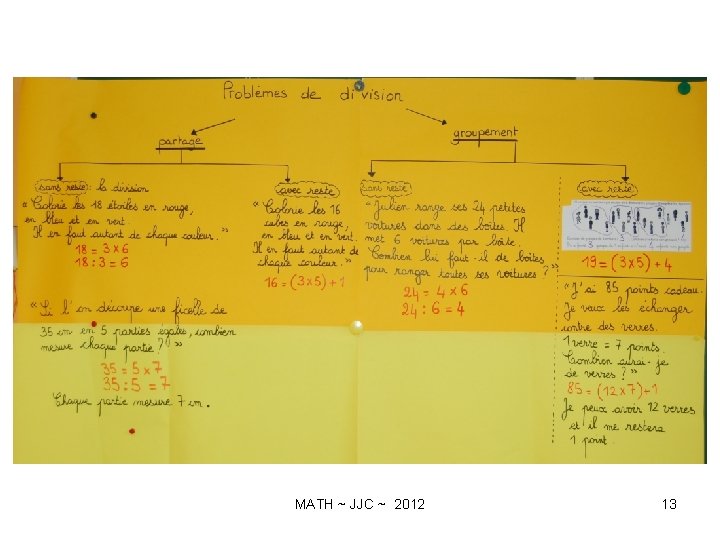 Problèmes de division
partage
groupement
sans reste : la division
« Colorie les 18 étoiles en rouge,
en bleu et en vert.
Il en faut autant de chaque couleur. »
18 = 3 x 6
18 : 3 = 6
« Si l'on découpe une ficelle de
35 cm en 5 parties égales, combien
mesure chaque partie ? »
35 = 5 x 7
35 : 5 = 7
Chaque partie mesure 7 cm.
avec reste
« Colorie les 16
cubes en rouge,
en bleu et en vert.
Il en faut autant de
chaque couleur. »
16 = (3x5) + 1
sans reste
« Julien range ses 24 petites
voitures dans des boîtes. Il
met 6 voitures par boîte.
Combien lui faut-il de boîtes
pour ranger toutes ses voitures ? »
24 = 4 x 6
24 : 6 = 4
avec reste
19 = (3x5) + 4
« J'ai 85 points cadeau.
Je veux les échanger
contre des verres.
1 verre = 7 points.
Combien aurai-je
de verres ? »
85 = (12 x 7) + 1
Je peux avoir 12 verres
et il me restera
1 point.
MATH ~ JJC ~ 2012
13